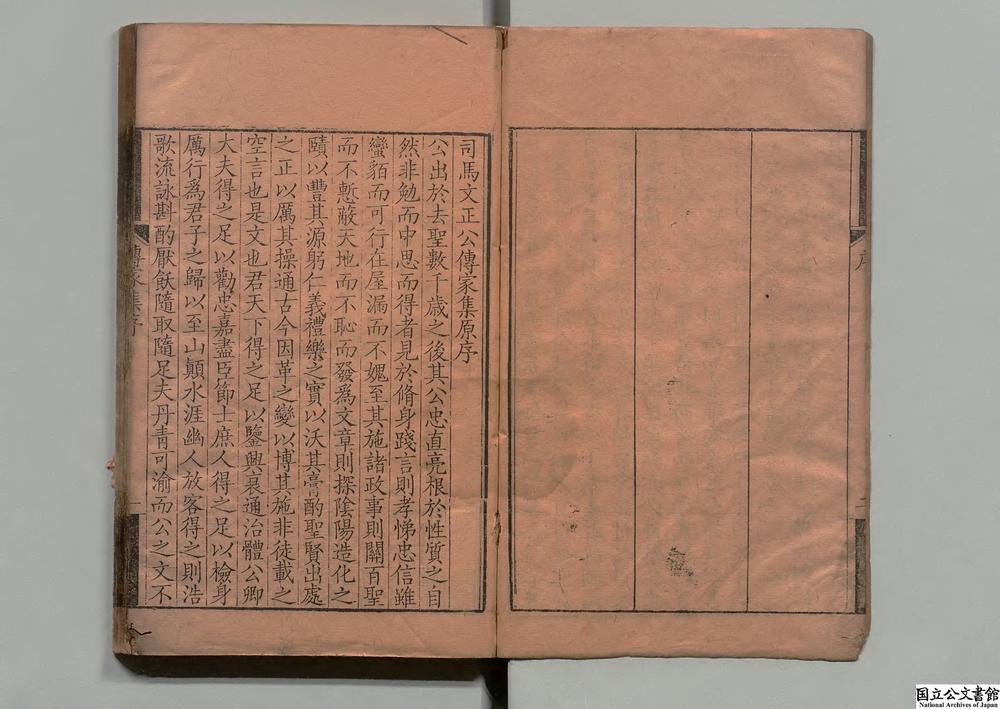 序
二
司馬文正公傳家集原序
公出於去聖數千歲之後其公忠直亮根於性質之自
然非勉而中思而得者見於脩身踐言則孝悌忠信雖
蠻貊而可行在屋漏而不媿至其施諸政事則關百聖
而不慙蔽天地而不恥而發爲文章則探陰陽造化之
賾以豐其源躬仁義禮樂之實以沃其膏酌聖賢出處
之正以厲其操通古今因革之變以博其施非徒載之
空言也是文也君天下得之足以鑒興衰通治體公卿
大夫得之足以勸忠嘉盡臣節士庶人得之足以檢身
厲行爲君子之歸以至山顛水涯幽人放客得之則浩
歌流詠斟酌厭飫隨取隨足夫丹青可渝而公之文不
傳家集序
一
国立公文書館
National Archives of Japan